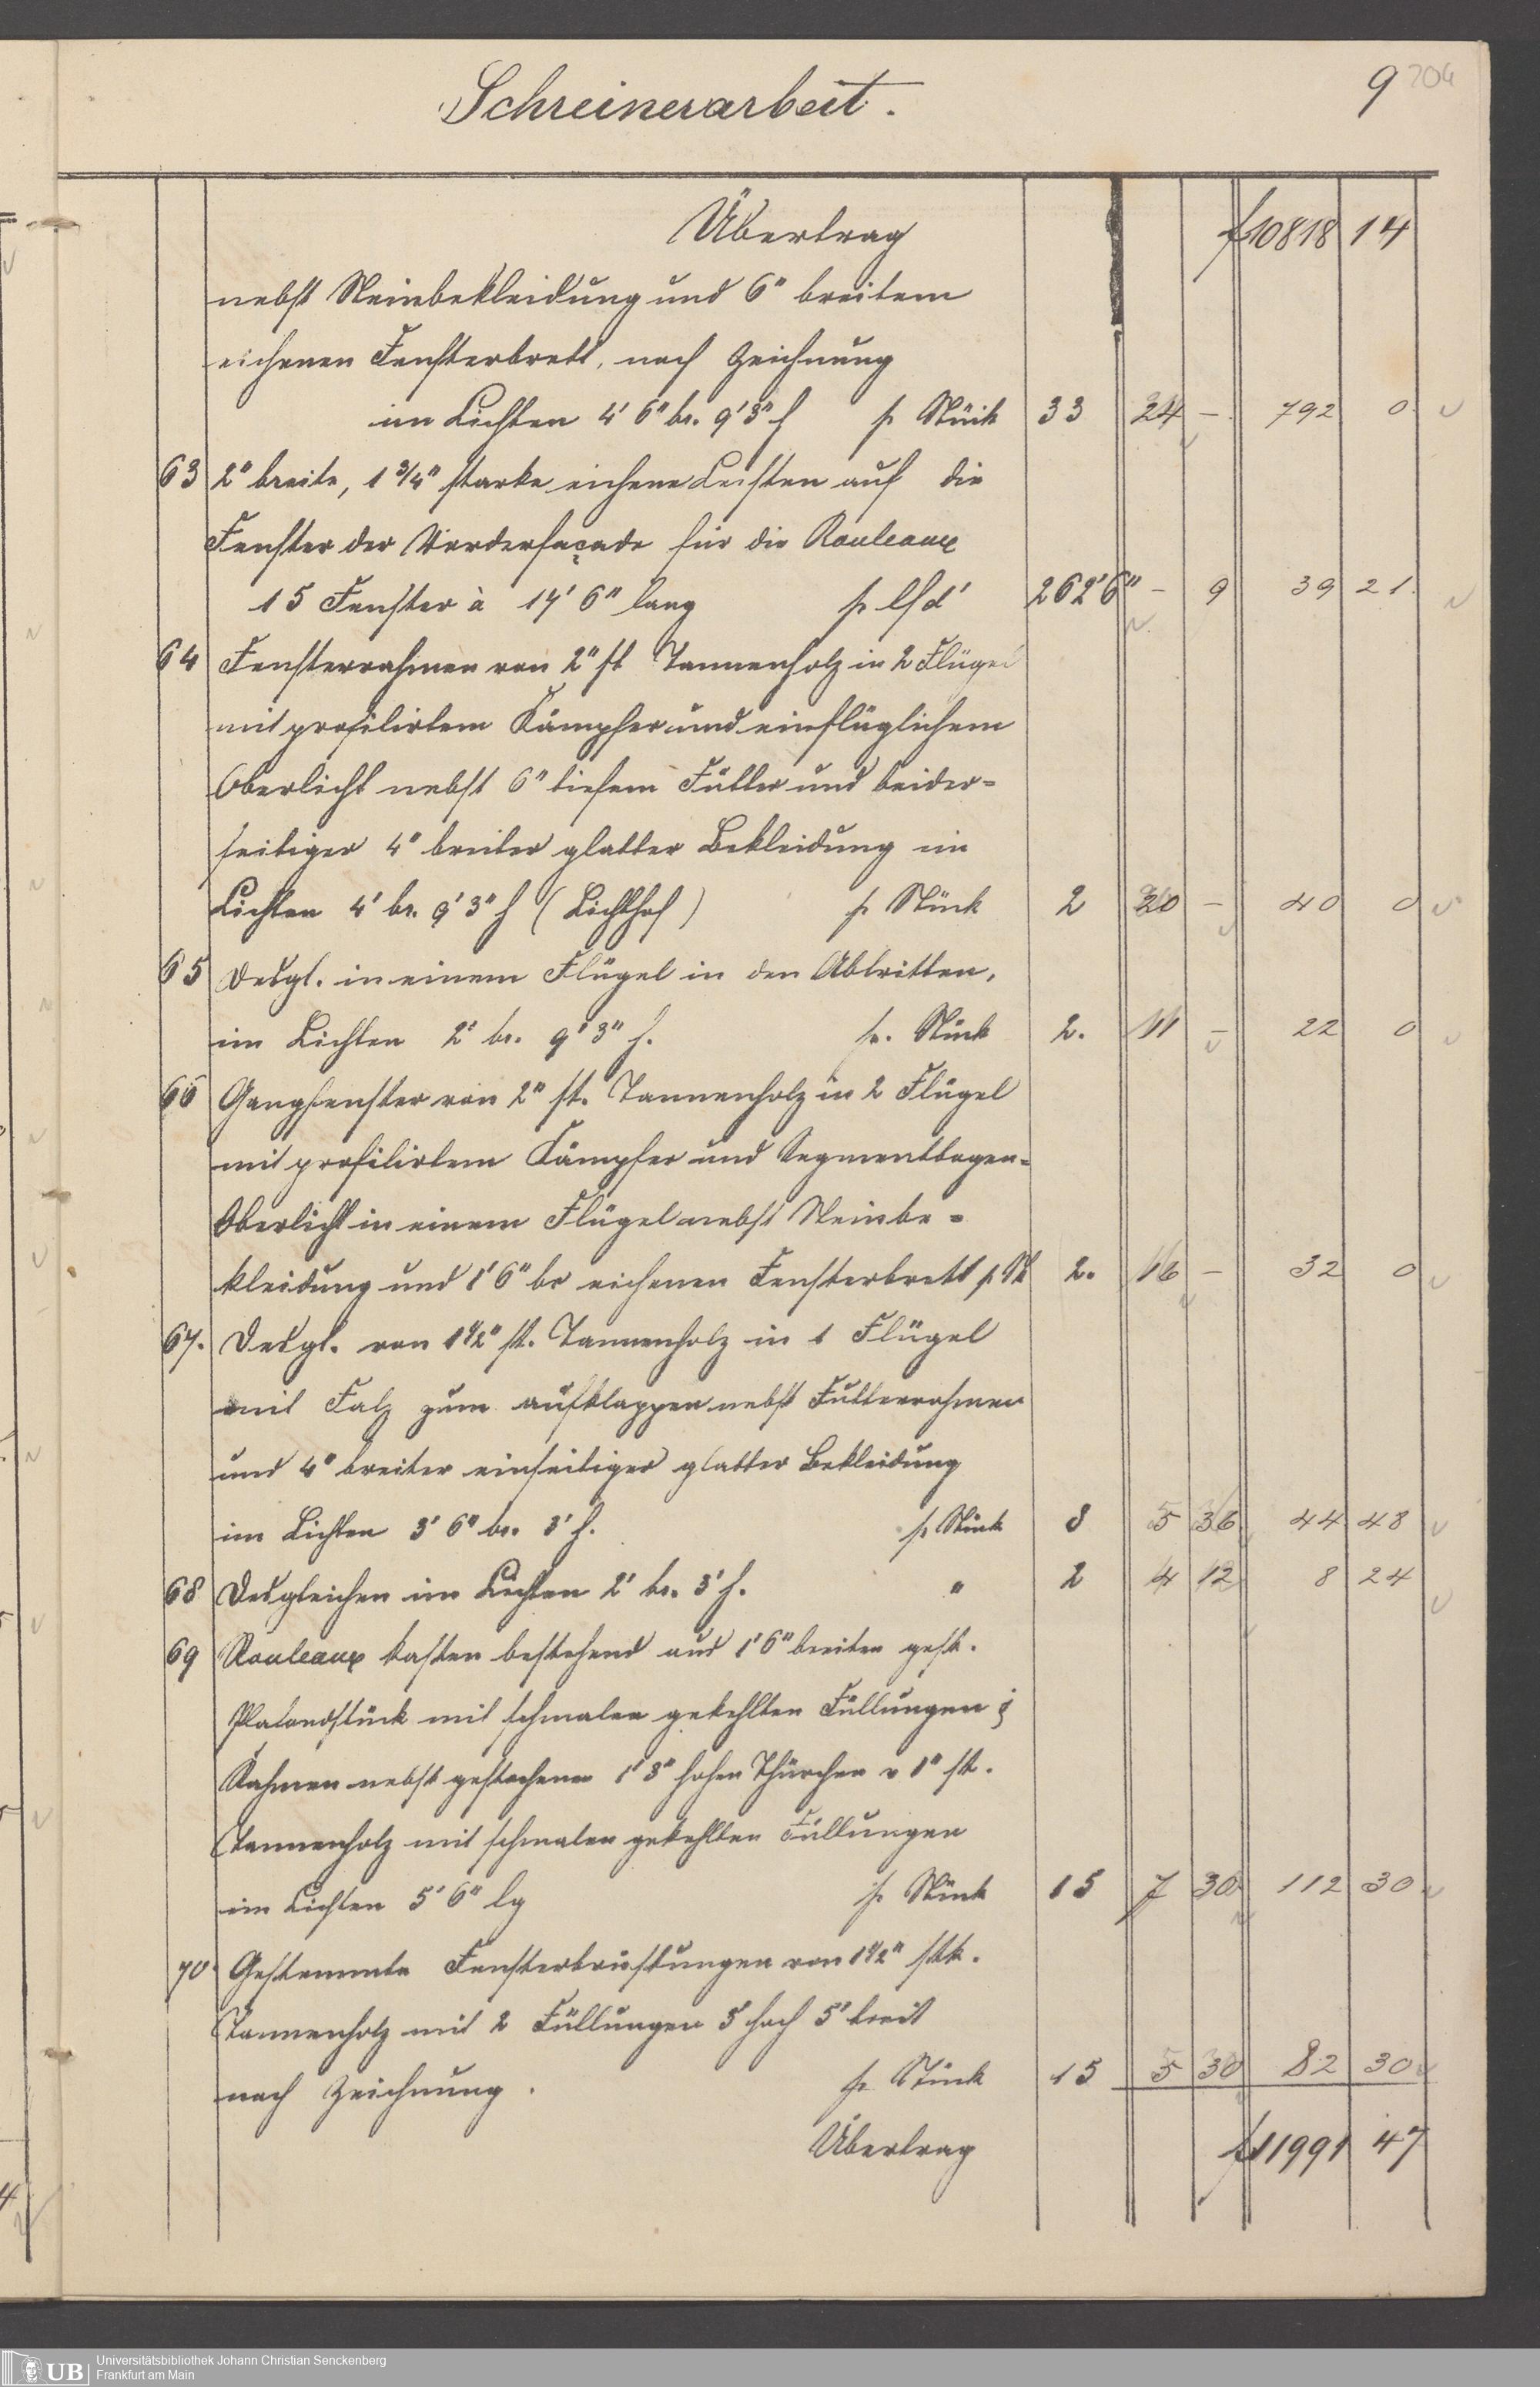 Schreinerarbeit.
9 704
Übertrag f 10818 14
nebst Steinbekleidung und 6" breitem
eichenen Fensterbrett, nach Zeichnung
im Lichten 4' 6" br. 9' 3" h p Stück 33 24 – 792 0
63 2" breite, 1 3/4" starke eichene Leisten auf die
Fenster der Vorderfaçade für die Rouleaux
15 Fenster à 17' 6" lang p lfd' 262' 6" – 9 39 21.
64 Fensterrahmen von 2" st Tannenholz in 2 Flügel
mit profilirtem Kämpfer und einflüglichem
Oberlicht nebst 6" tiefem Futter und beider=
seitiger 4" breiter glatter Bekleidung im
Lichten 4' br. 9' 3" h (Lichthof) p Stück 2 20 – 40 0
65 Desgl. in einem Flügel in den Abtritten,
im Lichten 2' br. 9' 3" h. p. Stück 2. 11 – 22 0
66 Gangfenster von 2" st. Tannenholz in 2 Flügel
mit profilirtem Kämpfer und Segmentbogen=
Oberlicht in einem Flügel nebst Steinbe=
kleidung und 1' 6" br eichenen Fensterbrett p St 2. 16 – 32 0
67. Desgl. von 1 1/2" st. Tannenholz in 1 Flügel
mit Falz zum aufklappen nebst Futterrahmen
und 4" breiter einseitiger glatter Bekleidung
im Lichten 3' 6" br. 3' h. p Stück 8 5 36 44 48
68 Desgleichen im Lichten 2' br. 3' h. " 2 4 12 8 24
69 Rouleaux kasten bestehend aus 1' 6" breiten gest.
Plafondstück mit schmalen gekehlten Füllungen &
Rahmen nebst gestochenen 1' 3" hohen Thürchen v 1" st.
Tannenholz mit schmalen gekehlten Füllungen
im Lichten 5' 6" lg p Stück 15 7 30 112 30
70. Gestemmte Fensterbrüstungen von 1 1/2" stk.
Tannenholz mit 2 Füllungen 3' hoch 5' breit
nach Zeichnung. p Stück 15 5 30 82 30
Übertrag f 11991 47
UB Universitätsbibliothek Johann Christian Senckenberg
Frankfurt am Main